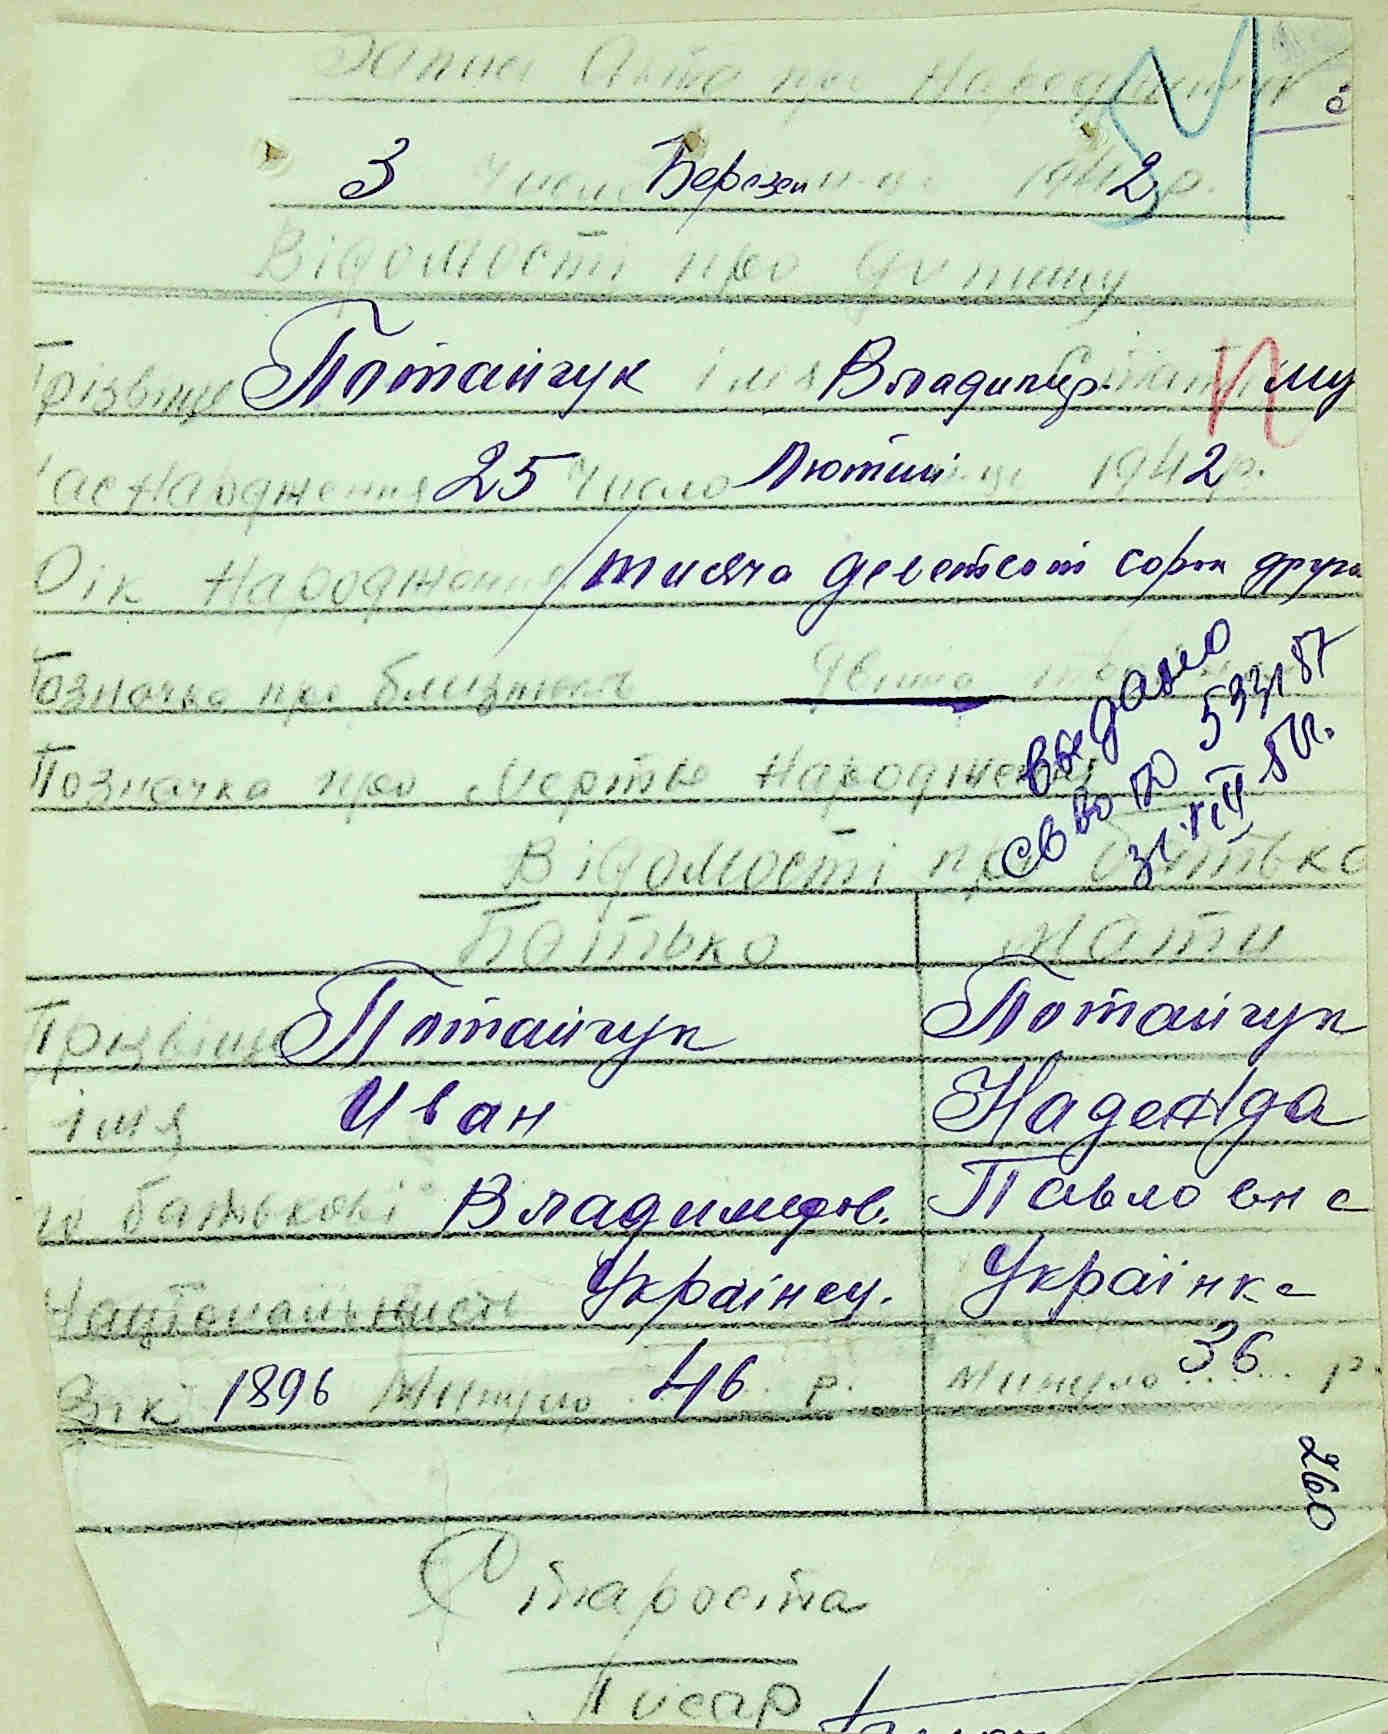 Запис Акта про Народження
3 число Березень м-ця 1942 р.
Відомості про дитину
Прізвище Потайчук імя Владимир Стать му
Час Народження 25 число Лютий м-ця 1942 р.
Рік Народження тисяча деветсот сорок друга
Позначка про близнюк двійня
Позначка про Мертве Народження
выдано
св во № 533187
31.XII 51г.
Відомості про батька
Батько Мати
Прізвище Потайчук Потайчук
імя Иван Надежда
по батькові Владимиров. Павловна
Національність Українец. Українка
Вік 1896 Минуло 46 р. Минуло 36 р.
260
Староста
Писар